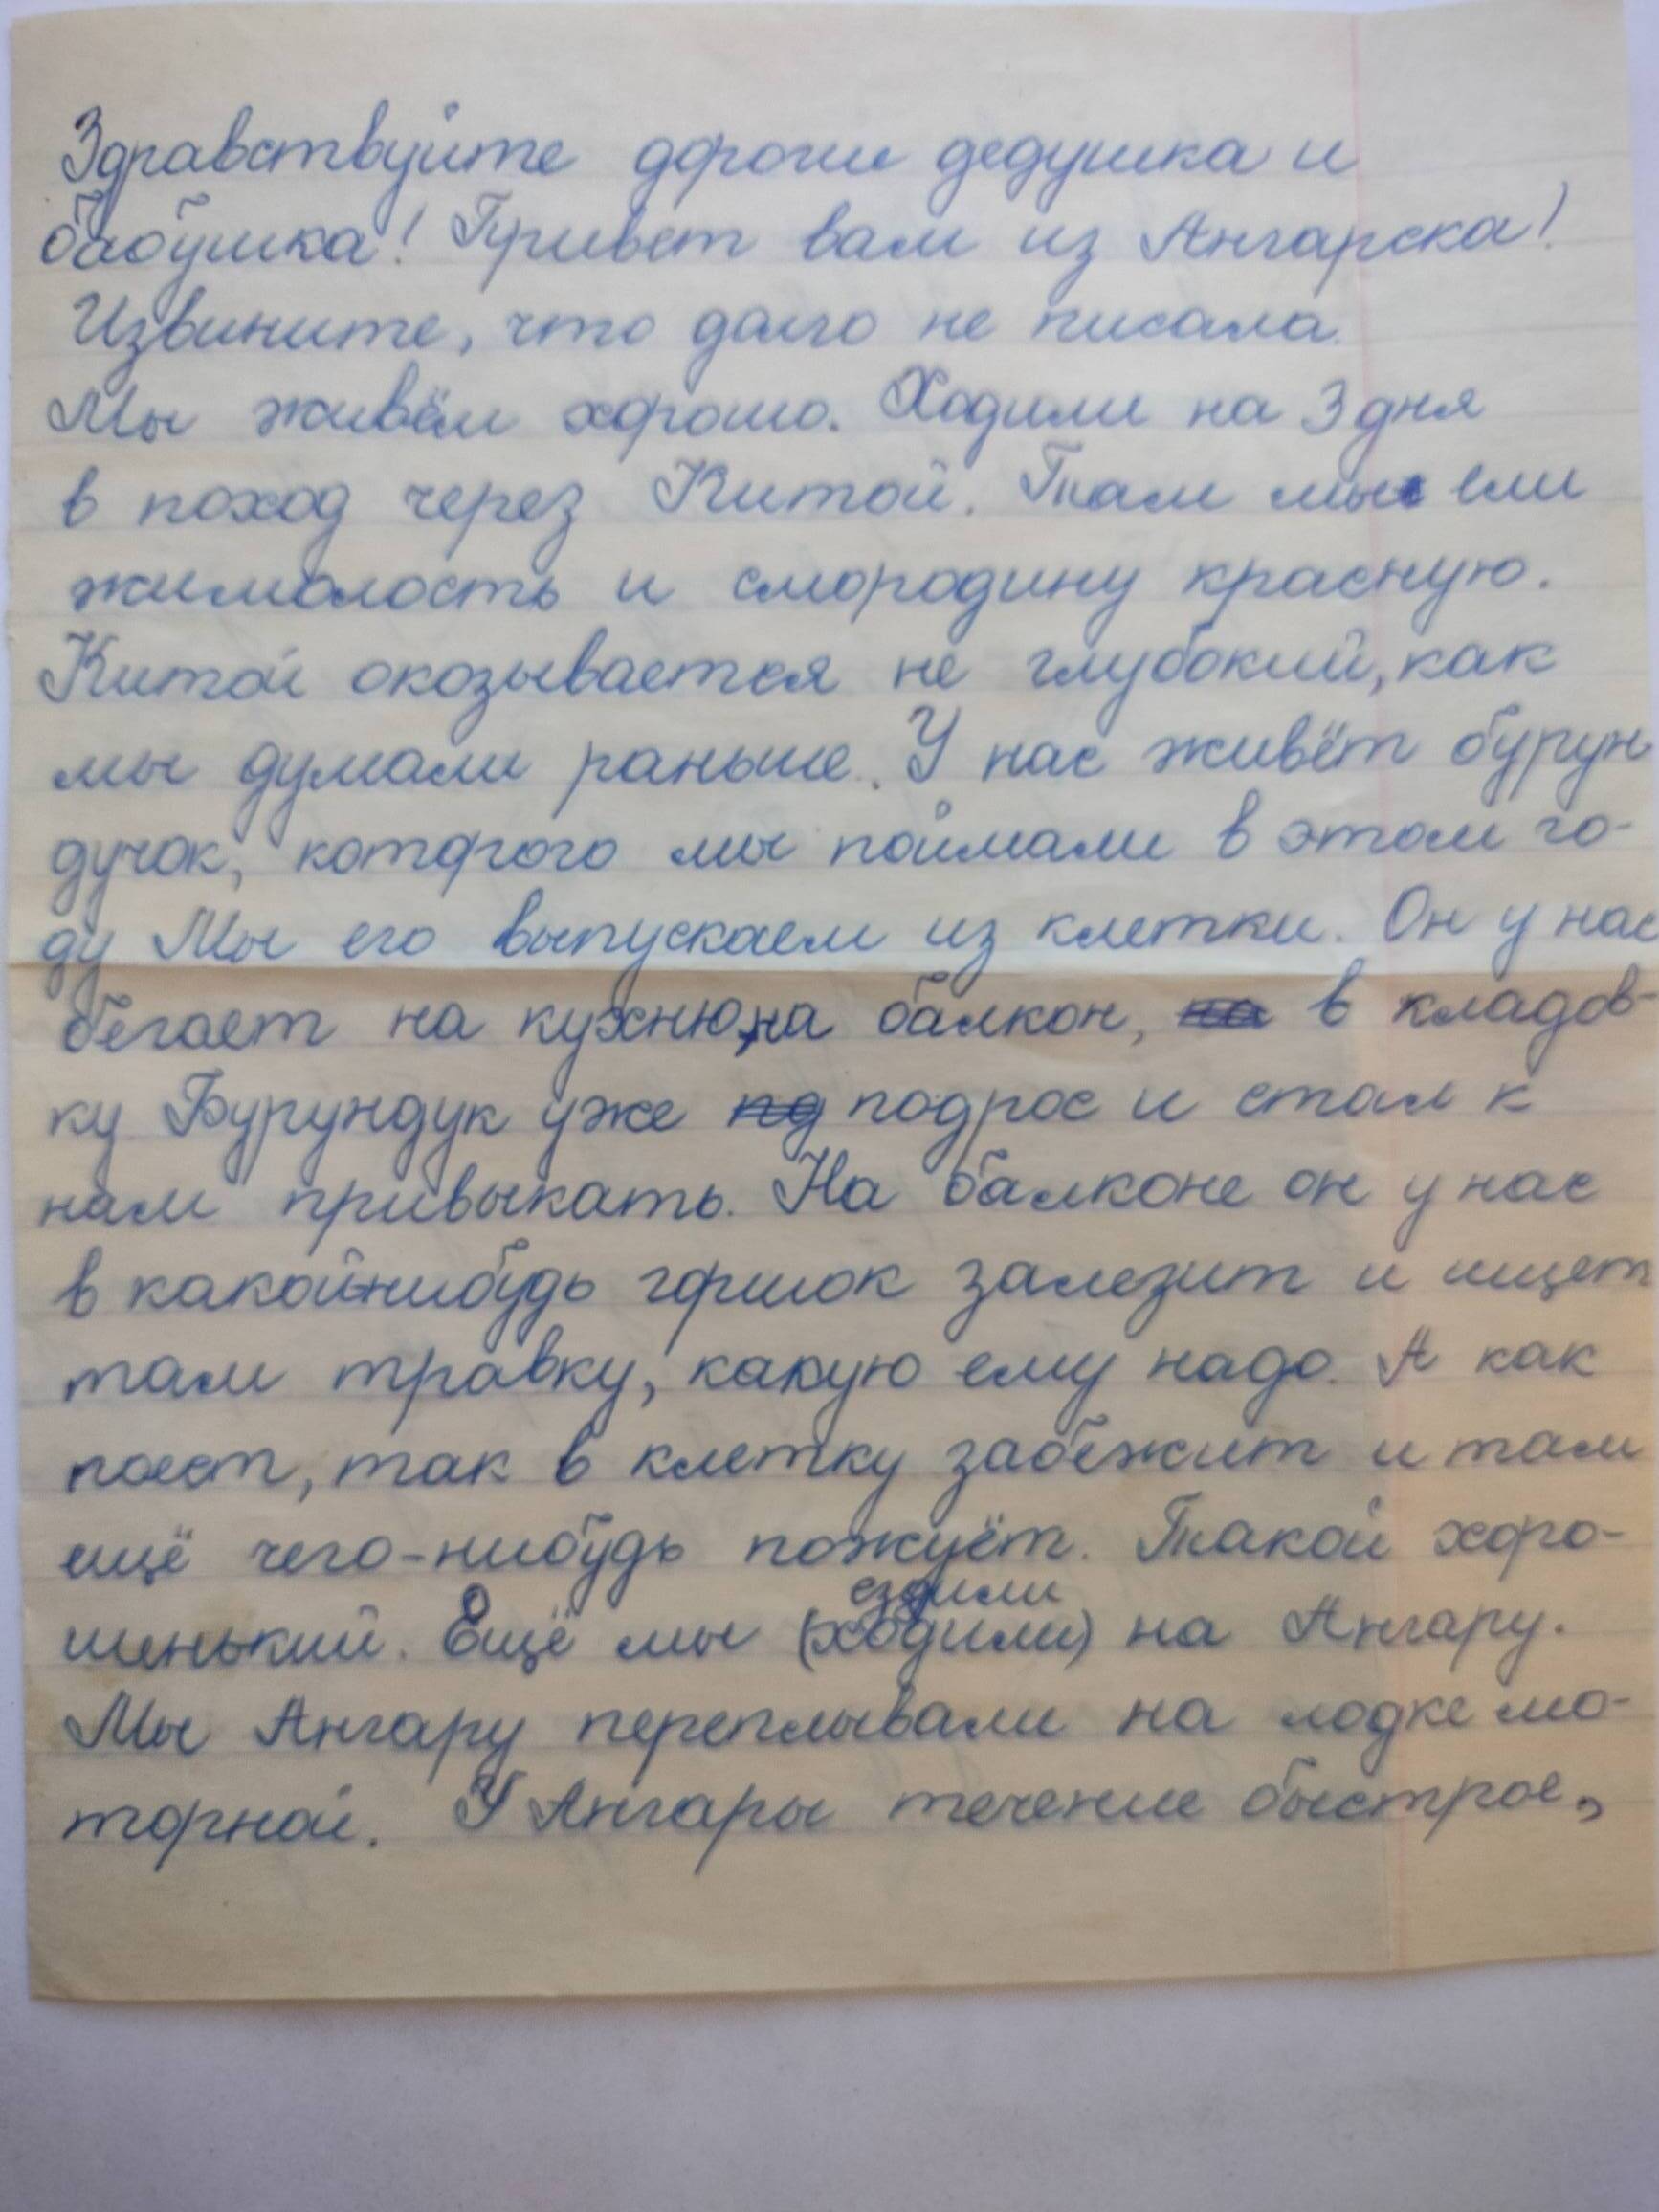 Здравствуйте дороги дедушка и
бабушка! Привет вам из Ангарска!
Извините, что долго не писала.
Мы живём хорошо. Ходили на 3 дня
в поход через Китой. Там мы ели
жимолость и смородину красную.
Китой окозывается не глубокий, как
мы думали раньше. У нас живёт бурун
дучок, которого мы поймали в этом го-
ду Мы его выпускаем из клетки. Он у нас
бегает на кухню, на балкон, на в кладов-
ку Бурундук уже под подрос и стал к
нам привыкать. На балконе он у нас
в какой-нибудь горшок залезит и ищет
там травку, какую ему надо. А как
поест, так в клетку забежит и там
ещё чего-нибудь пожуёт. Такой хоро-
ездили
шенький. Ещё мы (ходили) на Ангару.
Мы Ангару переплывали на лодке мо-
торной. У Ангары течение быстрое,